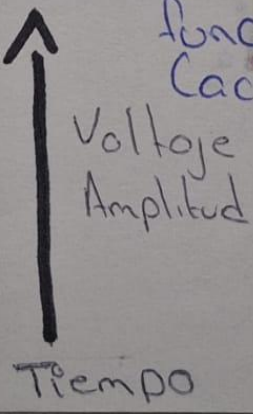 func
Cac
Voltaje
Amplitud
Tiempo